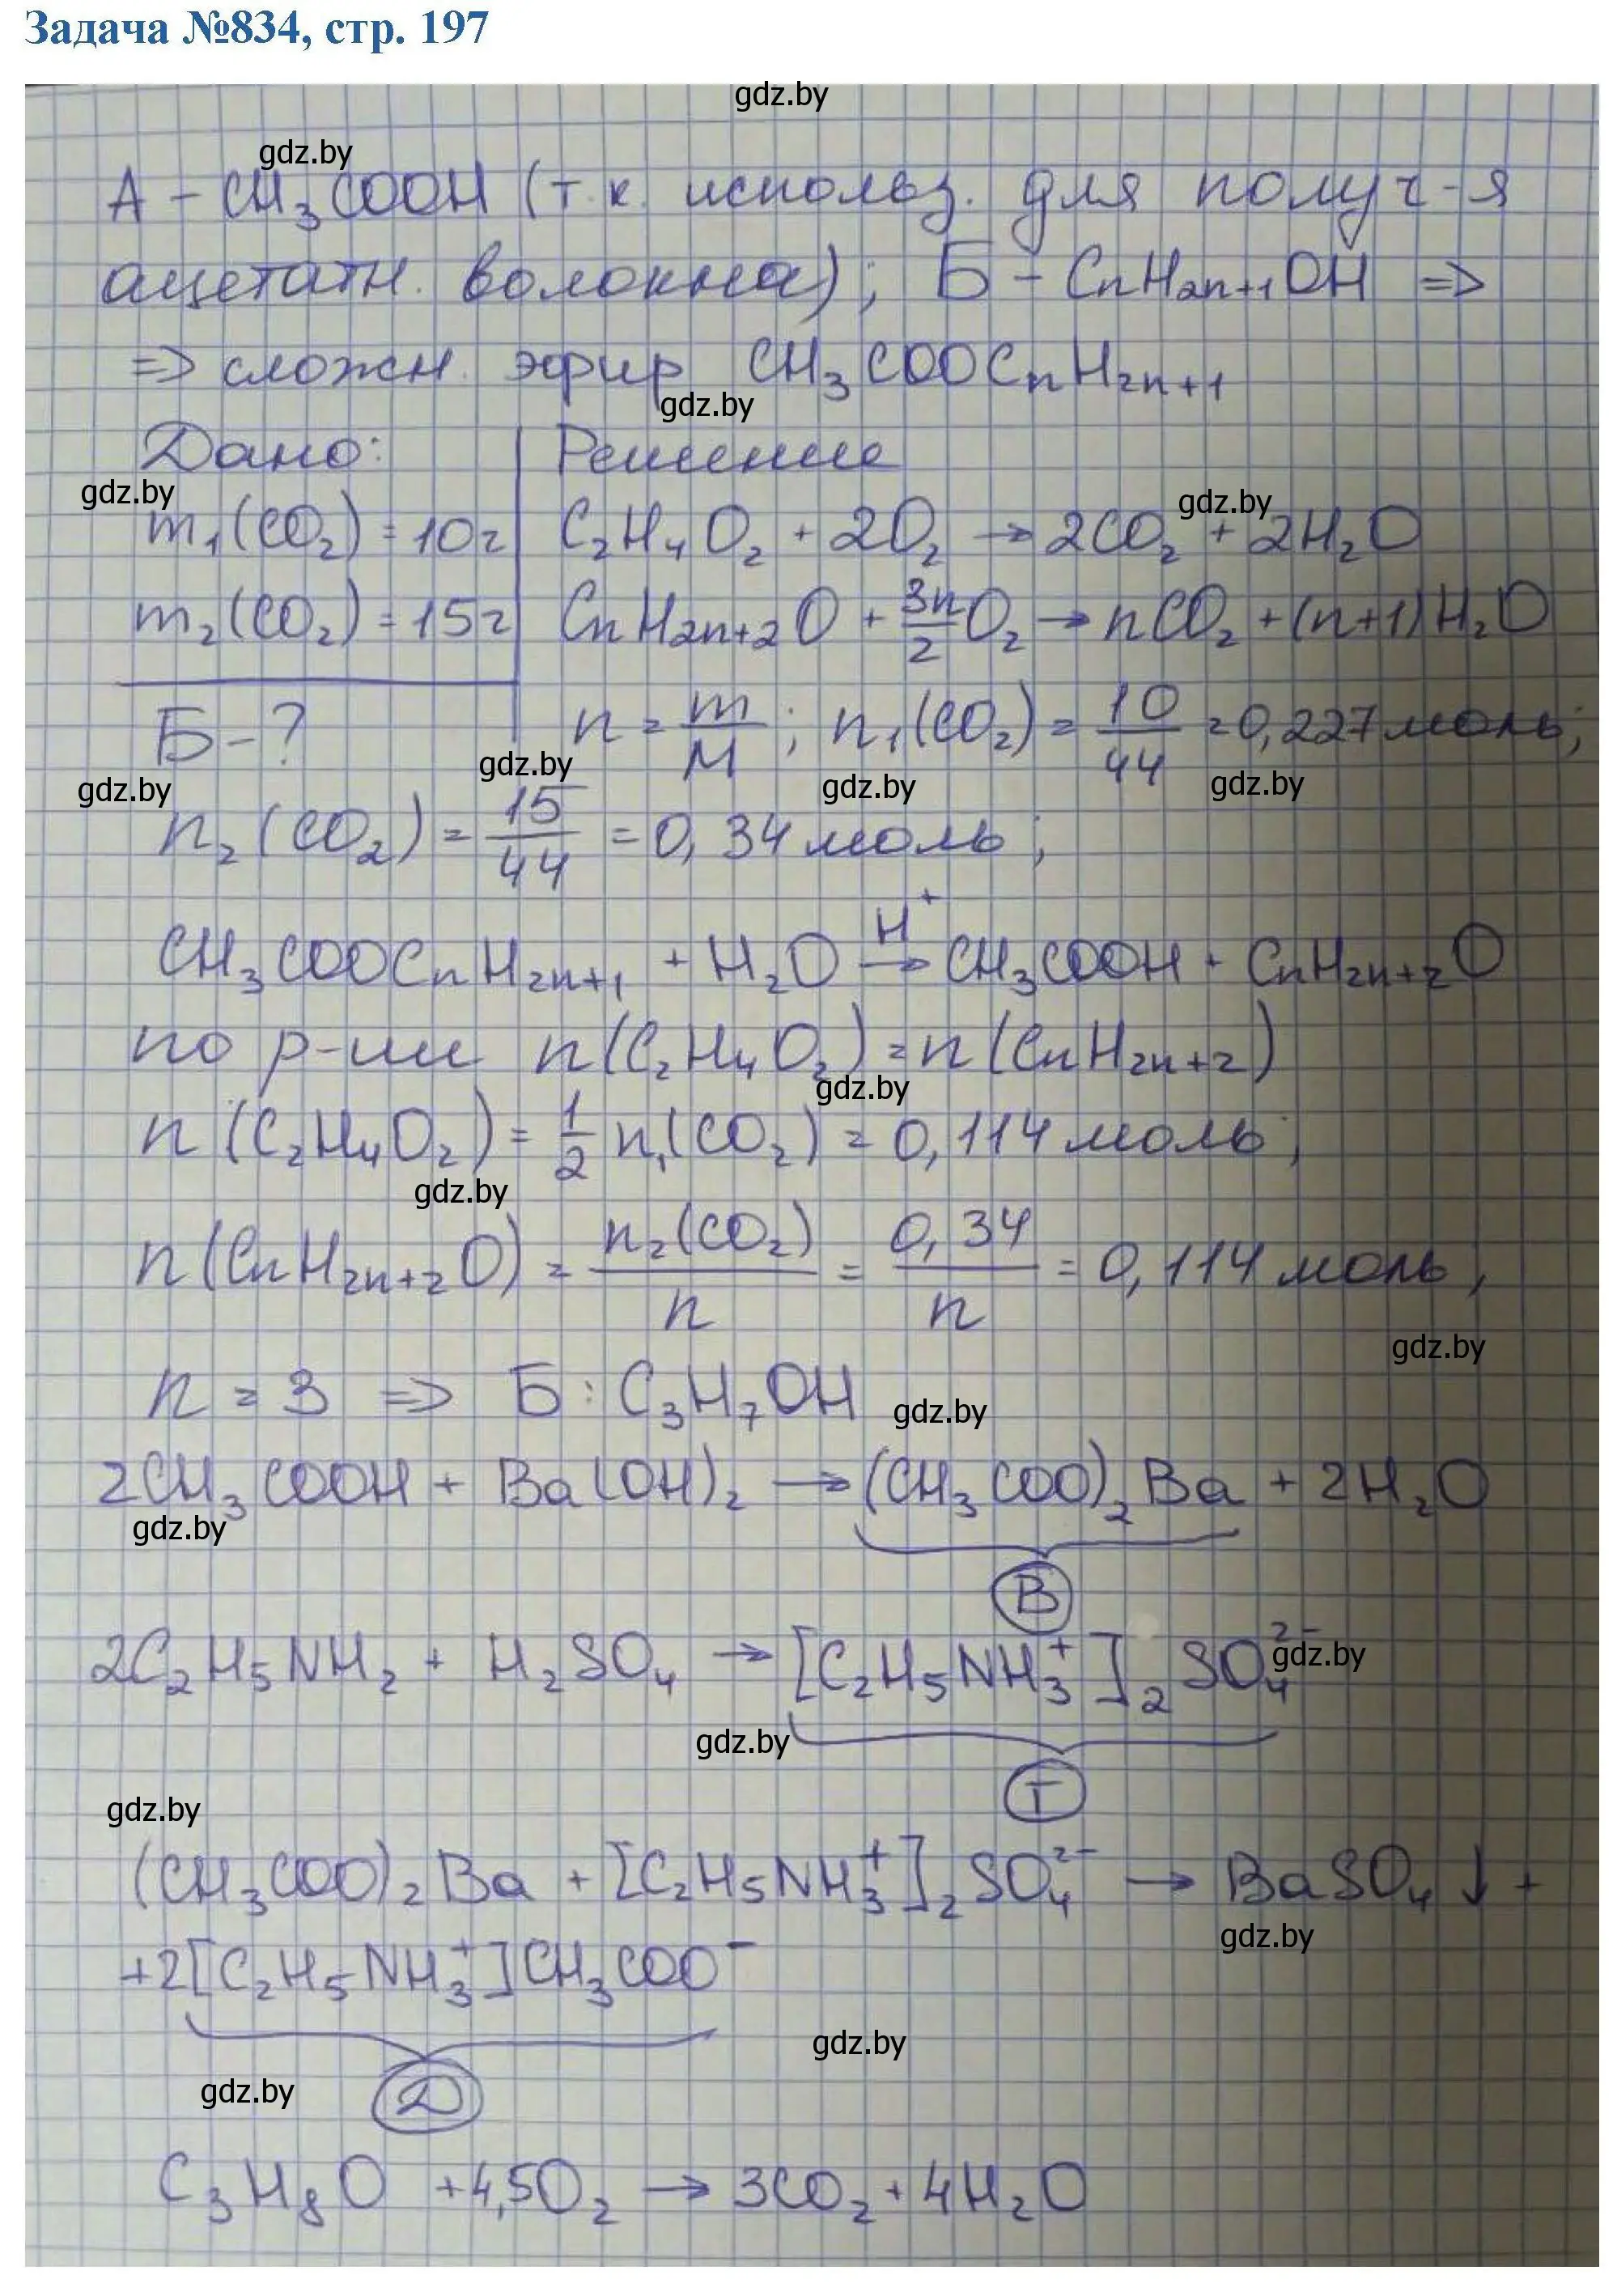 Задача №834, стр. 197
gdz.by
gdz.by
А – CH₃COOH (т.к. использ. для получ-я
ацетатн. волокна); Б – CnH₂n₊₁OH =>
=> сложн. эфир CH₃COOCnH₂n₊₁
gdz.by
Дано: Решение
gdz.by gdz.by
m₁(CO₂) = 10г C₂H₄O₂ + 2O₂ → 2CO₂ + 2H₂O
m₂(CO₂) = 15г CnH₂n₊₂O + 3n/2 O₂ → nCO₂ + (n+1)H₂O
Б – ? n = m/M ; n₁(CO₂) = 10/44 = 0,227 моль;
gdz.by gdz.by gdz.by gdz.by
n₂(CO₂) = 15/44 = 0,34 моль;
CH₃COOCnH₂n₊₁ + H₂O →(H⁺) CH₃COOH + CnH₂n₊₂O
по р-ии n(C₂H₄O₂) = n(CnH₂n₊₂)
gdz.by
n(C₂H₄O₂) = 1/2 n₁(CO₂) = 0,114 моль;
gdz.by
n(CnH₂n₊₂O) = n₂(CO₂)/n = 0,34/n = 0,114 моль;
gdz.by
n = 3 => Б : C₃H₇OH
gdz.by
2CH₃COOH + Ba(OH)₂ → (CH₃COO)₂Ba + 2H₂O
gdz.by
В
2C₂H₅NH₂ + H₂SO₄ → [C₂H₅NH₃⁺]₂SO₄²⁻
gdz.by
gdz.by
Г
gdz.by
(CH₃COO)₂Ba + [C₂H₅NH₃⁺]₂SO₄²⁻ → BaSO₄↓ +
gdz.by
+2[C₂H₅NH₃⁺]CH₃COO⁻
gdz.by
gdz.by
Д
C₃H₈O + 4,5O₂ → 3CO₂ + 4H₂O